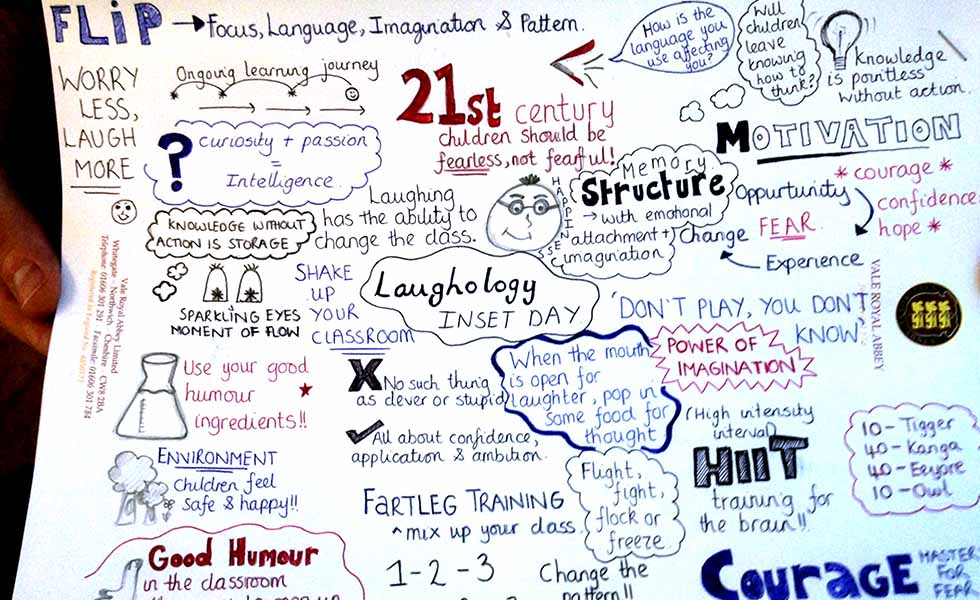 FLiP → Focus, Language, Imagination & Pattern.
WORRY
LESS,
LAUGH
MORE
Ongoing learning journey
? curiosity + passion
=
Intelligence.
21st century
children should be
fearless, not fearful!
How is the
language you
use affecting
you?
Will
children
leave
knowing
how to
think?
Knowledge
is pointless
without action.
MOTIVATION
* courage *
confidence
hope *
Oppurtunity
Change FEAR
Experience
Memory
Structure
→ with emotional
attachment +
imagination
HAPPINESS
KNOWLEDGE WITHOUT
ACTION IS STORAGE
Laughing
has the ability to
change the class.
SPARKLING EYES
MOMENT OF FLOW
SHAKE
UP
YOUR
CLASSROOM
Laughology
INSET DAY
'DON'T PLAY, YOU DON'T
KNOW
VALE ROYAL ABBEY
Vale Royal Abbey Limited
Whitegate · Northwich · Cheshire · CW8 2BA
Telephone 01606 301 291 Facsimile 01606 301 784
Use your good
humour
ingredients!!
X No such thing
as clever or stupid
✓ All about confidence,
application & ambition.
When the mouth
is open for
laughter, pop in
some food for
thought
POWER OF
IMAGINATION
(High intensity
interval)
HIIT
training for
the brain!!
10 - Tigger
40 - Kanga
40 - Eeyore
10 - Owl
ENVIRONMENT
Children feel
safe & happy!!
FARTLEG TRAINING
^ mix up your class.
Flight,
fight,
flock or
freeze.
Good Humour
in the classroom
1-2-3
Change the
pattern!!
Courage
MASTER
FOR
FEAR